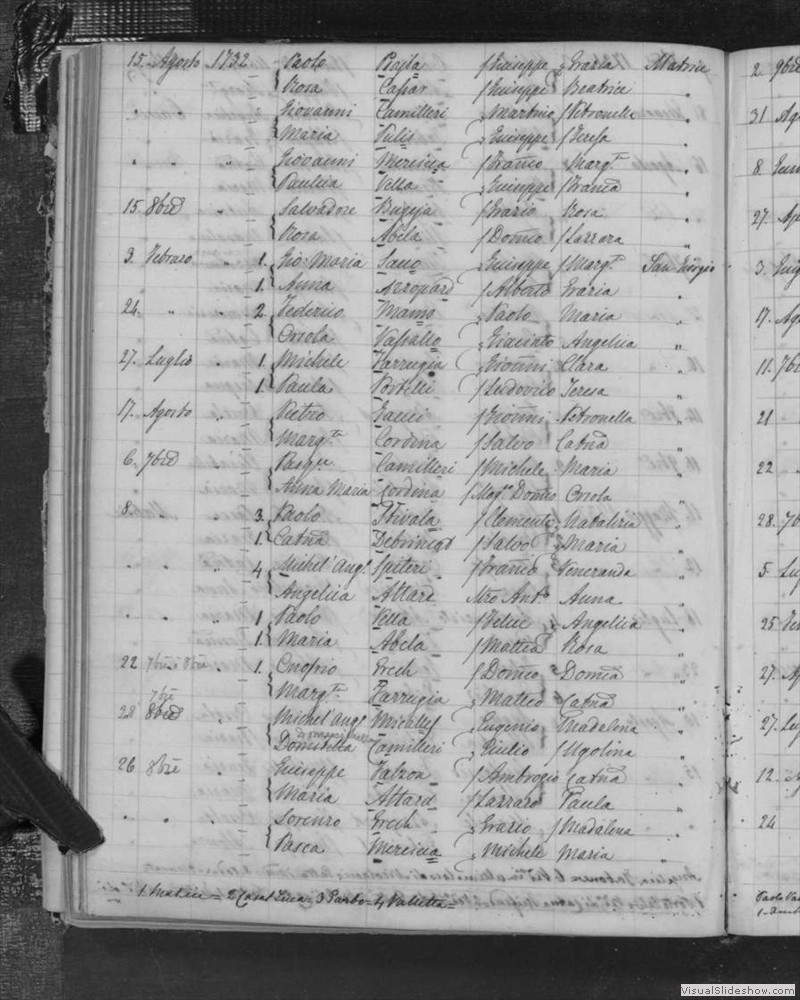 15. Agosto 1732 Paolo Psajla / Giuseppe Grazia Matrice
Rosa Cassar / Giuseppe Beatrice "
Giovanni Camilleri Martino / Petronella "
Maria Vulis Giuseppe / Teresa "
" " " Giovanni Mercieca / Franco Margta "
Paulica Vella Giuseppe / Franca "
15. 8bre " Salvadore Bugeja / Grazio Rosa "
Rosa Abela / Domco / Lazzara "
3. Febraro " 1. Gio: Maria Sauo Giuseppe / Margta San Giorgio
1. Anna Azzopard / Alberto Grazia "
24. " " 2. Federico Mamo Paolo Maria "
Orsola Vassallo Giacinto Angelica "
27. Luglio " 1. Michele Farrugia Gioanni Clara "
1. Paula Portelli / Ludovico Teresa "
17. Agosto " Pietro Gauci / Gioanni Petronella "
Margta Cordina / Salvo Catna "
6. 7bre " Pasqu Camilleri / Michele Maria "
Anna Maria Cordina Domco Orsola "
8. " " 3. Paolo / Clemente Natalizia "
1. Catna Debrincat / Salvo Maria "
" " " 4 Michel'Angl Spiteri / Franco Veneranda "
Angelica Attard Mro Anto Anna "
" " " 1 Paolo Vella / Felice Angelica "
1. Maria Abela / Mattea Rosa "
22 7bre 8bre " 1. Onofrio Grech / Domco Domca "
Margta Farrugia Matteo Catna "
7bre
28 8bre " Michel'Angl Micallef Eugenio Madalena "
Domitilla Camilleri Giulio / Ugolina "
26 8bre " Giuseppe Falzon / Ambrogio Catna "
Maria Attard / Lazzaro Paula "
" " " Lorenzo Grech Grazio / Madalena "
Pasca Mercieca Michele Maria "
1 Matrice = 2 Casal Luca = 3 Rabbo = 4 Valletta =
2 9bre
31 Ag
8. Genn
27. Ap
3. Giug
17. Ag
11. 7b
21
22
28. 7b
5 Lug
25
27. Ap
27. Lug
12. A
24
VisualSlideshow.com